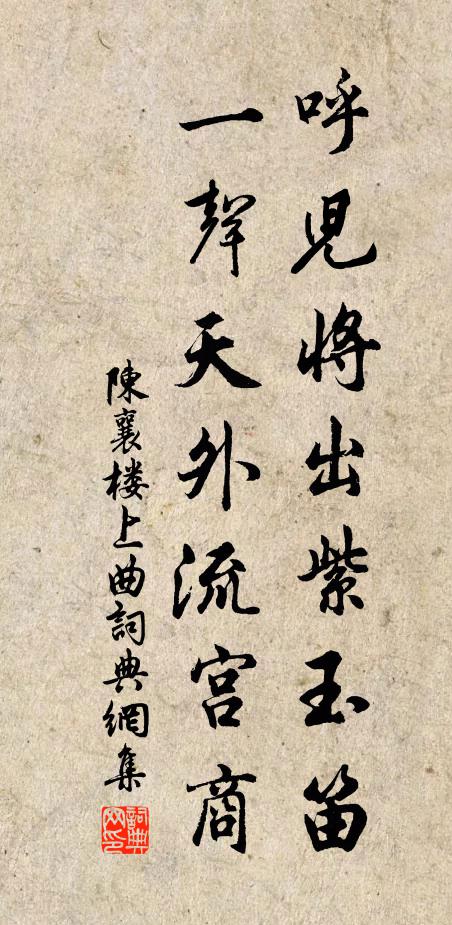 呼児将出紫玉笛
一聲天外流宫商
陳襄楼上曲詞典網集
詞典网印